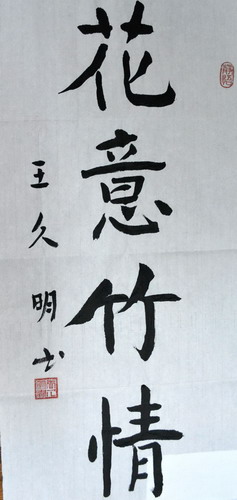 花意竹情
王久明书